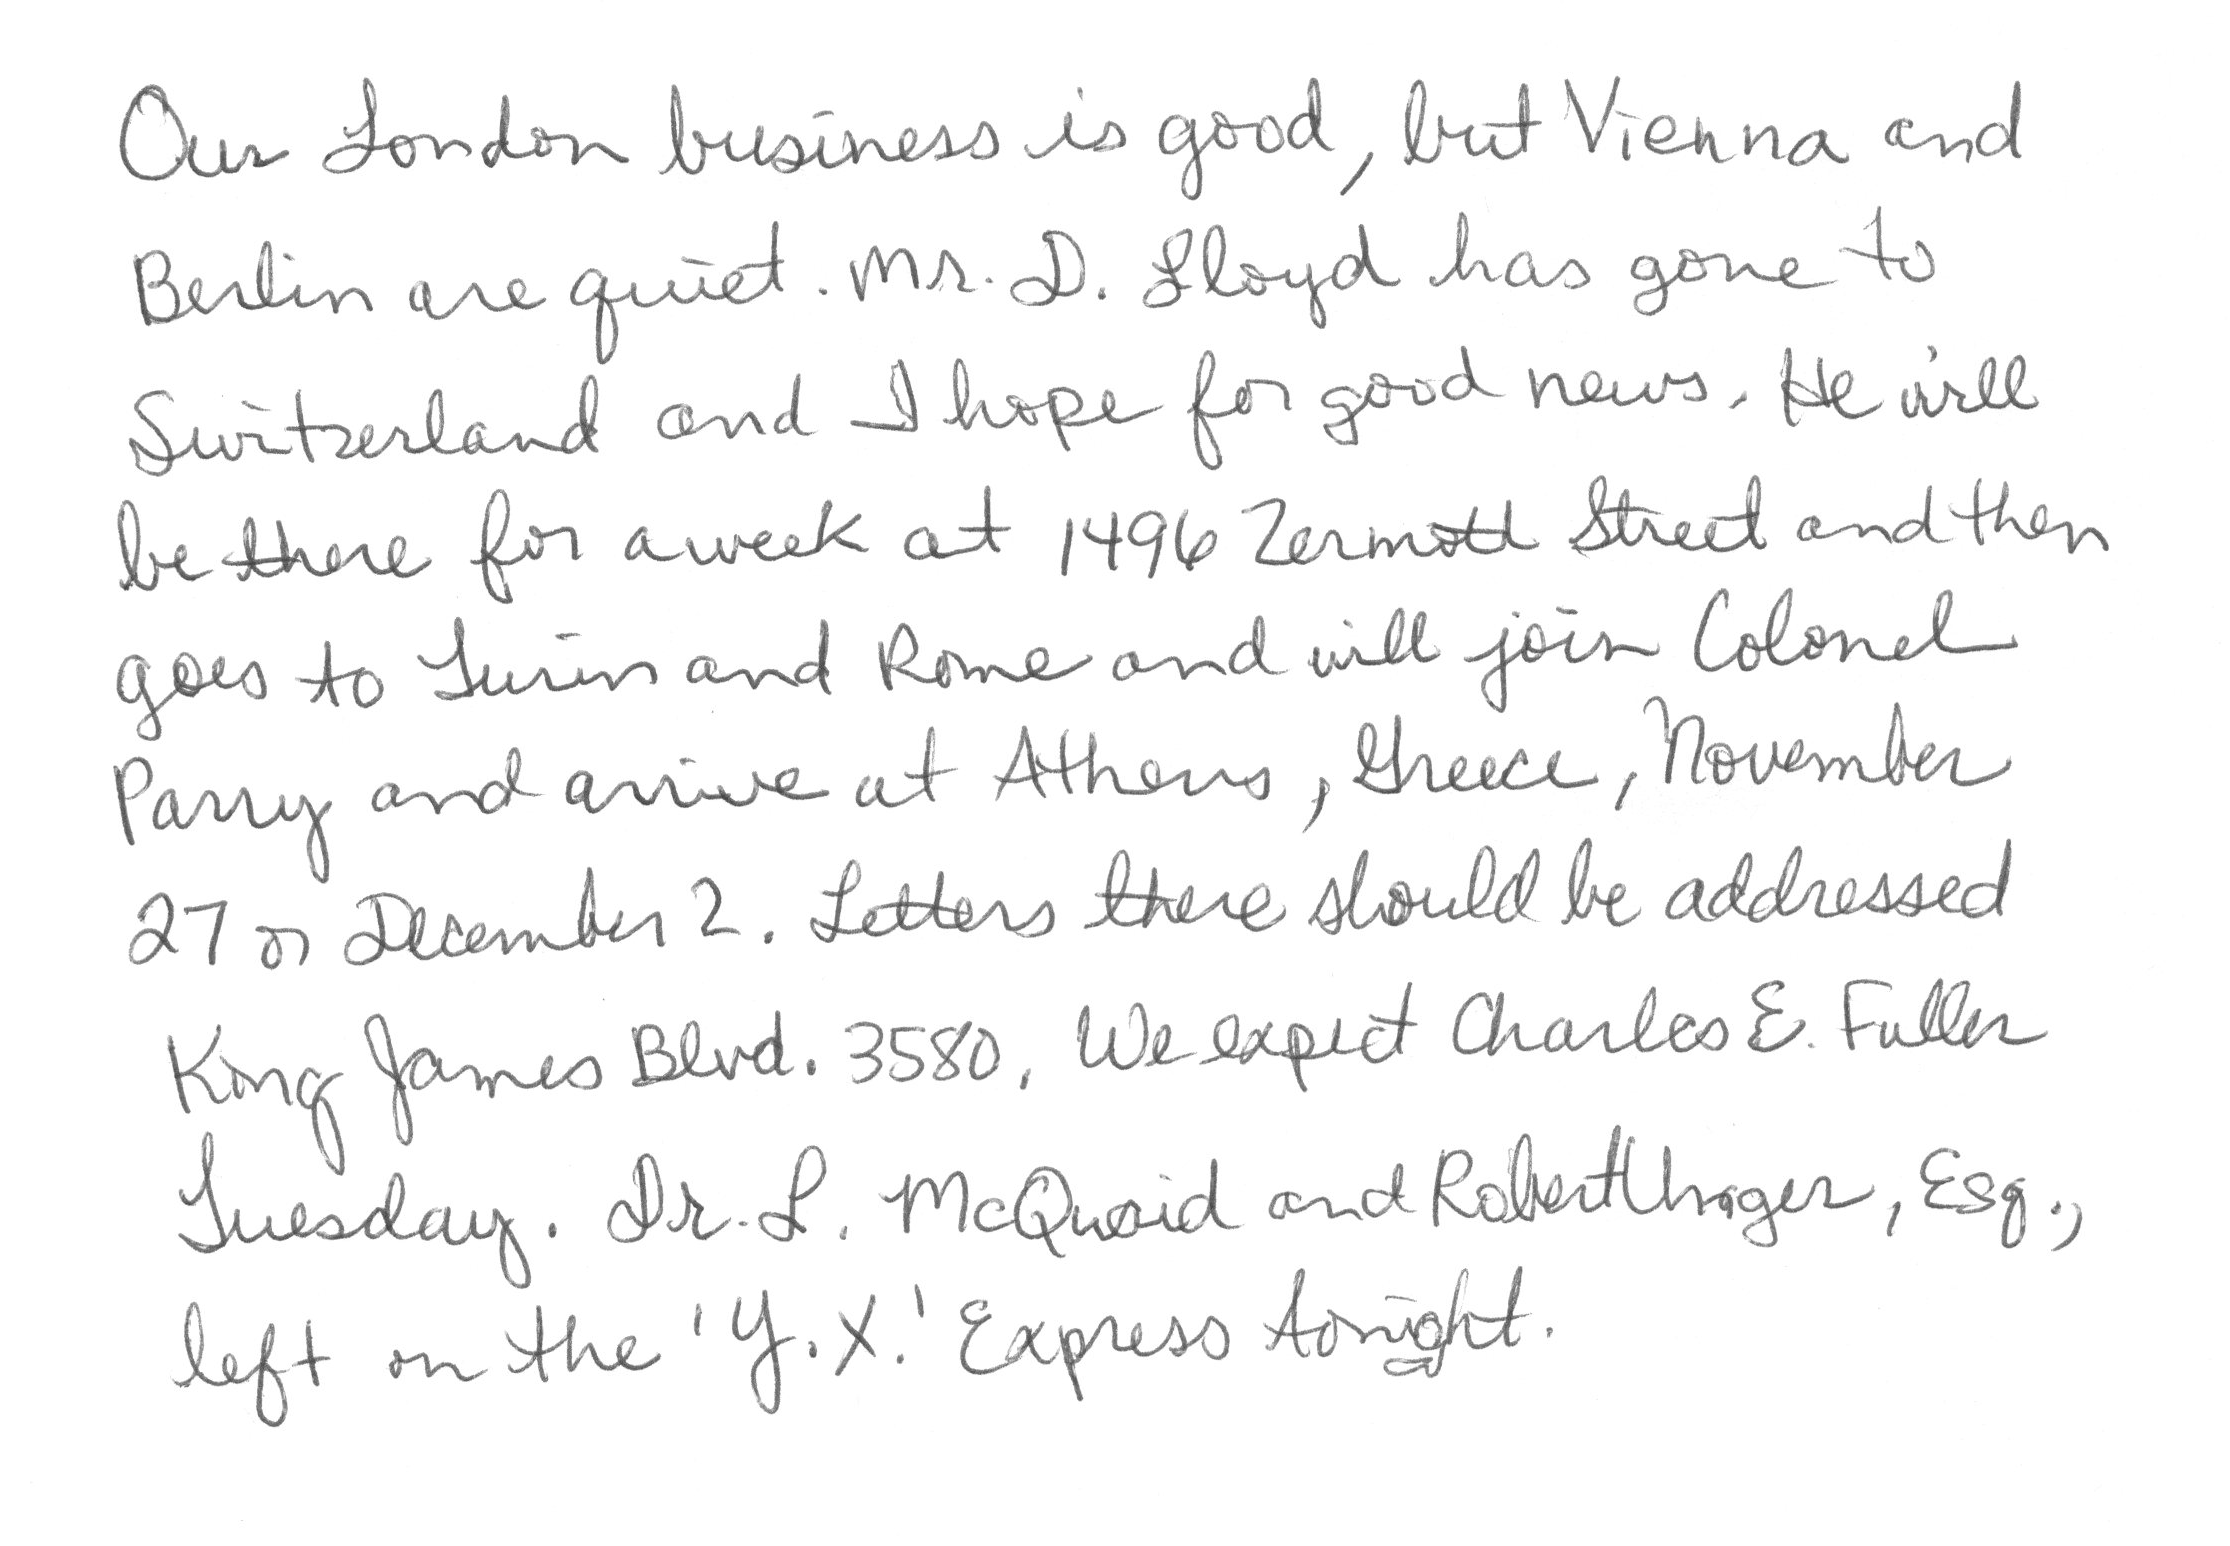 Our London business is good, but Vienna and
Berlin are quiet. Mr. D. Lloyd has gone to
Switzerland and I hope for good news. He will
be there for a week at 1496 Zermott Street and then
goes to Turin and Rome and will join Colonel
Parry and arrive at Athens, Greece, November
27 or December 2. Letters there should be addressed
King James Blvd. 3580. We expect Charles E. Fuller
Tuesday. Dr. L. McQuaid and Robert Unger, Esq.,
left on the 'Y.X.' Express tonight.